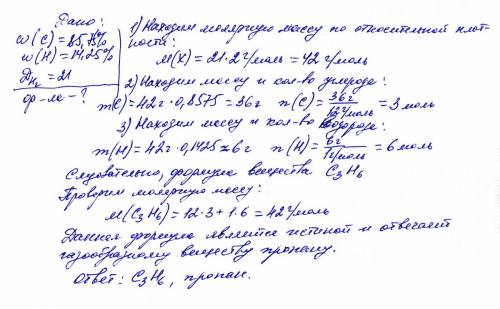 Дано:
w(C)=85,75%
w(H)=14,25%
D H₂ = 21
ф-ла - ?
1) Находим молярную массу по относительной плот-
ности:
M(X) = 21·2 г/моль = 42 г/моль
2) Находим массу и кол-во углерода:
m(C)=42г·0,8575=36г n(C)=36г/12г/моль=3 моль
3) Находим массу и кол-во водорода:
m(H)=42г·0,1425≈6г n(H)=6г/1г/моль=6 моль
Следовательно, формула вещества C₃H₆
Проверим молярную массу:
M(C₃H₆)=12·3+1·6=42г/моль
Данная формула является истиной и отвечает
газообразному веществу пропану.
Ответ: C₃H₆, пропан.